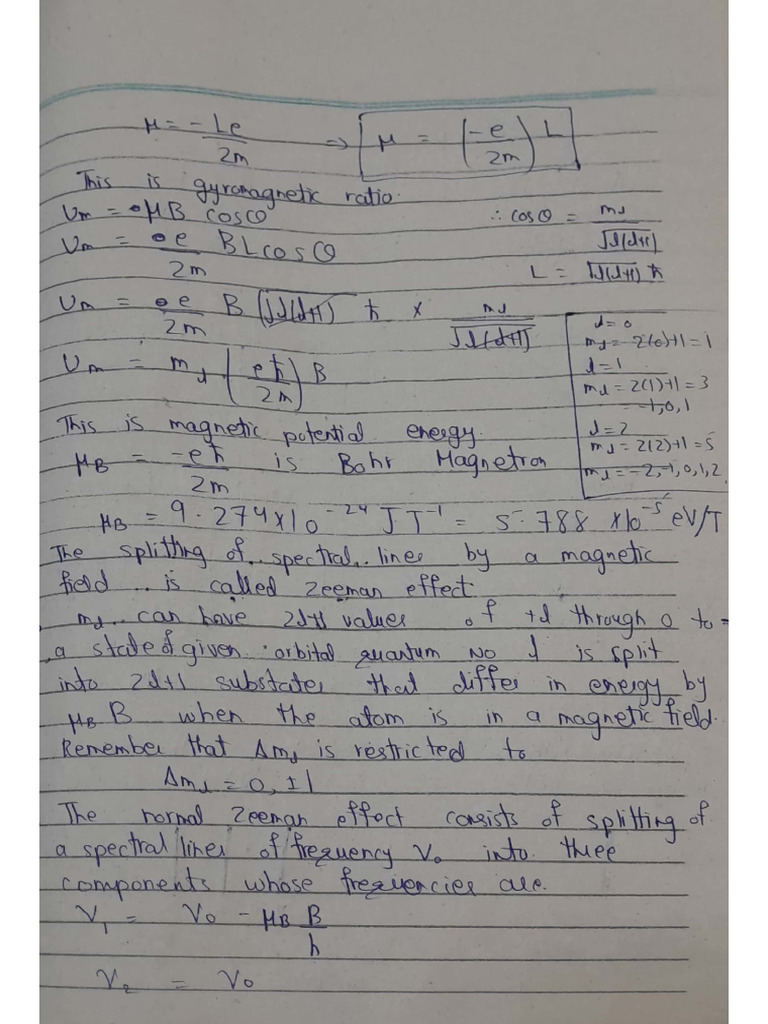 μ = -Le/2m ⇒ μ = (-e/2m) L
This is gyromagnetic ratio.
Um = μB cosθ ∴ cosθ = ml/√l(l+1)
Um = e/2m BL cosθ L = √l(l+1) ħ
Um = e/2m B √l(l+1) ħ × ml/√l(l+1)
Um = ml (eħ/2m) B
l = 0
ml = 2(0)+1 = 1
l = 1
ml = 2(1)+1 = 3
= -1, 0, 1
l = 2
ml = 2(2)+1 = 5
ml = -2, -1, 0, 1, 2
This is magnetic potential energy.
μB = -eħ/2m is Bohr Magnetron
μB = 9.274 x 10^-24 J T^-1 = 5.788 x 10^-5 eV/T
The splitting of spectral lines by a magnetic
field is called Zeeman effect
ml can have 2l+1 values of +l through 0 to -
a state of given orbital quantum No l is split
into 2l+1 substates that differ in energy by
μB B when the atom is in a magnetic field.
Remember that Δml is restricted to
Δml = 0, ±1
The normal Zeeman effect consists of splitting of
a spectral lines of frequency V0 into three
components whose frequencies are.
V1 = V0 - μB B/h
V2 = V0